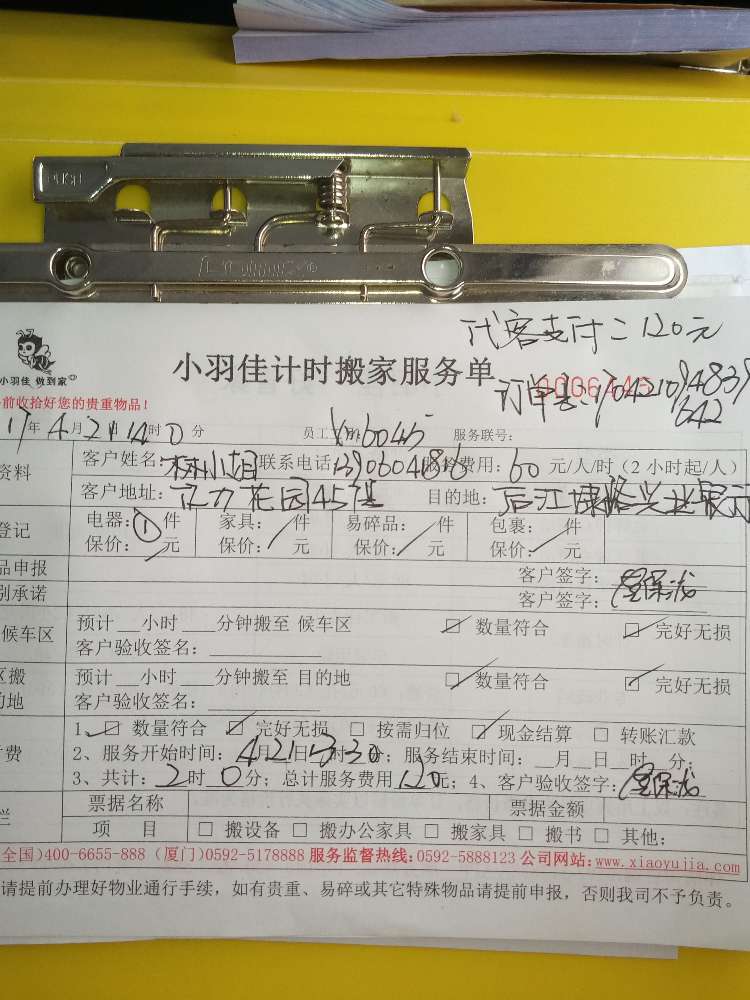 PUSH
代客支付=120元
小羽佳 做到家
小羽佳计时搬家服务单
前收拾好您的贵重物品!
订单号:170421094839
642
17年4月21日14时0分 员工工 6045 服务联号:
资料 客户姓名:林小姐 联系电话: 服务费用:60元/人/时(2小时起/人)
客户地址: 花园45 目的地:后江
登记 电器:1件 家具: 件 易碎品: 件 包裹: 件
保价: 元 保价: 元 保价: 元 保价: 元
品申报 客户签字:
别承诺 客户签字:
候车区 预计__小时___分钟搬至 候车区 ☑ 数量符合 ☑ 完好无损
客户验收签名:
区搬 预计__小时___分钟搬至 目的地 ☑ 数量符合 ☑ 完好无损
的地 客户验收签名:
1、☑ 数量符合 ☑ 完好无损 □ 按需归位 ☑ 现金结算 □ 转账汇款
费 2、服务开始时间:4月21日13时30分;服务结束时间:__月__日__时__分;
3、共计:2时0分;总计服务费用120元;4、客户验收签字:
栏 票据名称 票据金额
项 目 □ 搬设备 □ 搬办公家具 □ 搬家具 □ 搬书 □ 其他:
全国)400-6655-888 (厦门)0592-5178888 服务监督热线:0592-5888123 公司网站:www.xiaoyujia.com
请提前办理好物业通行手续,如有贵重、易碎或其它特殊物品请提前申报,否则我司不予负责。